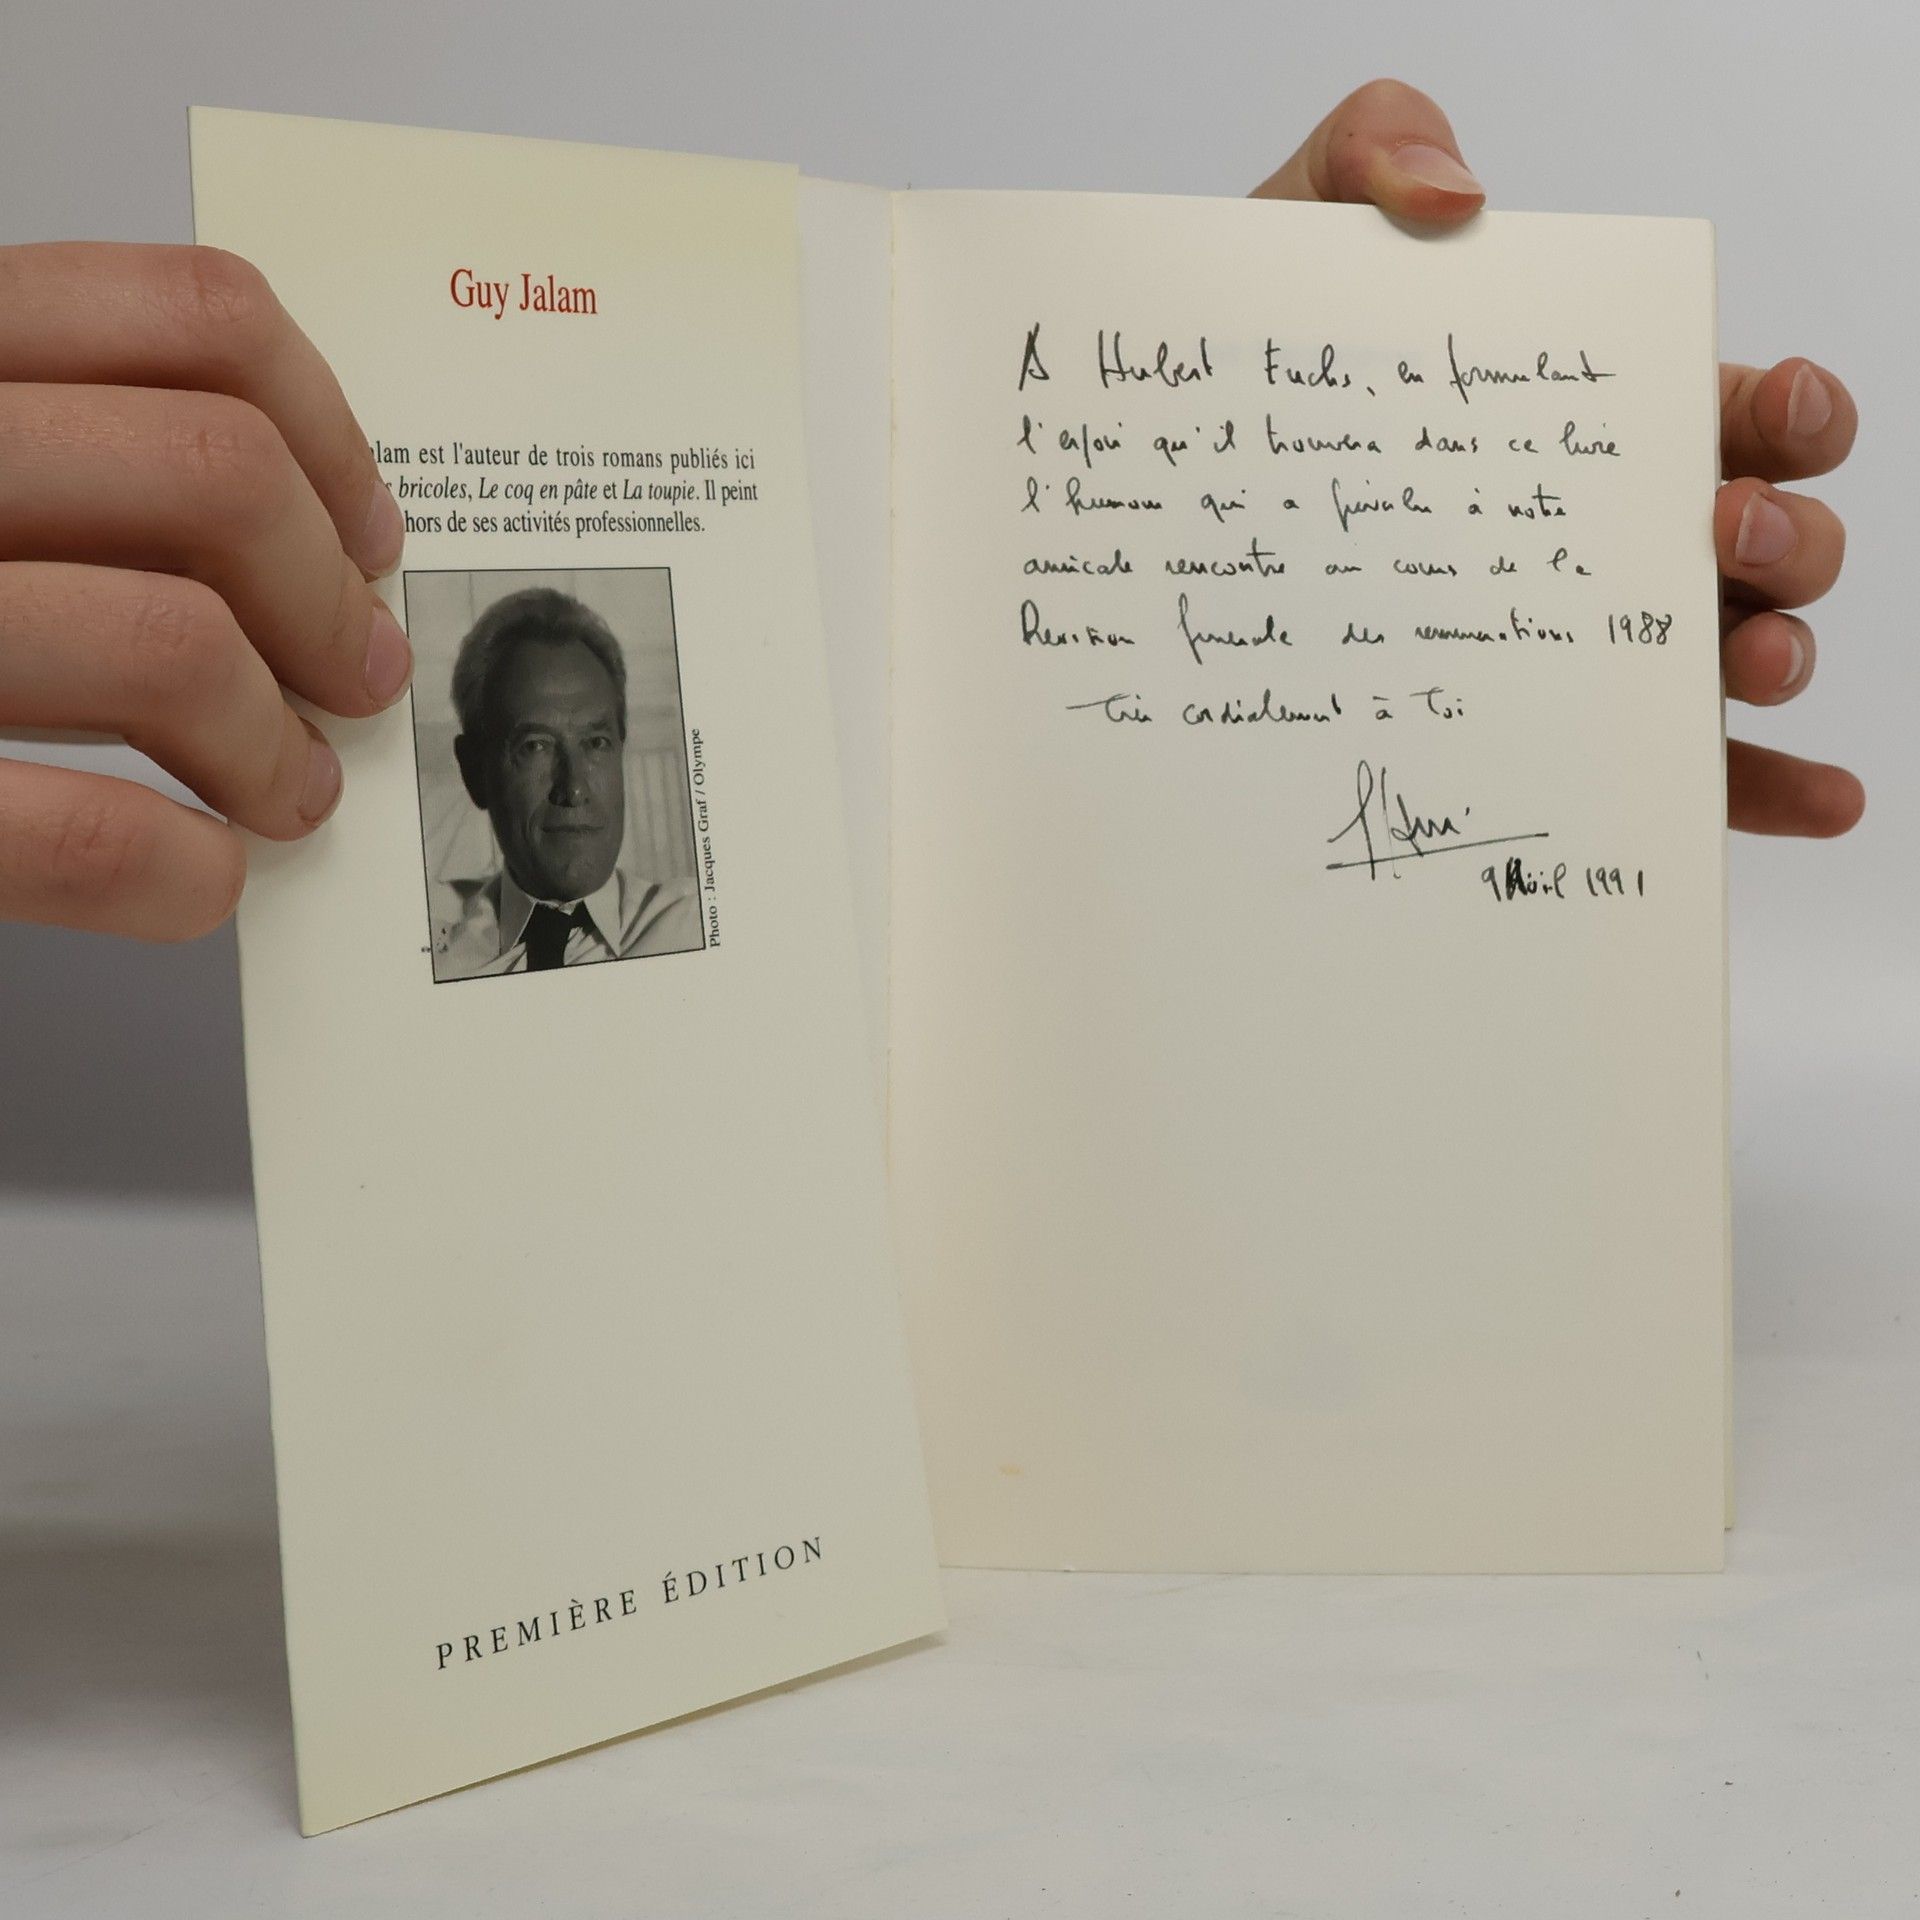 Guy Jalam
alam est l'auteur de trois romans publiés ici
s bricoles, Le coq en pâte et La toupie. Il peint
hors de ses activités professionnelles.
Photo : Jacques Graf / Olympe
PREMIÈRE ÉDITION
A Hubert Fuchs, en formulant
l'espoir qu'il trouvera dans ce livre
l'humour qui a prévalu à notre
amicale rencontre au cours de la
Révision générale des rémunérations 1988
Très cordialement à Toi
9 Avril 1991